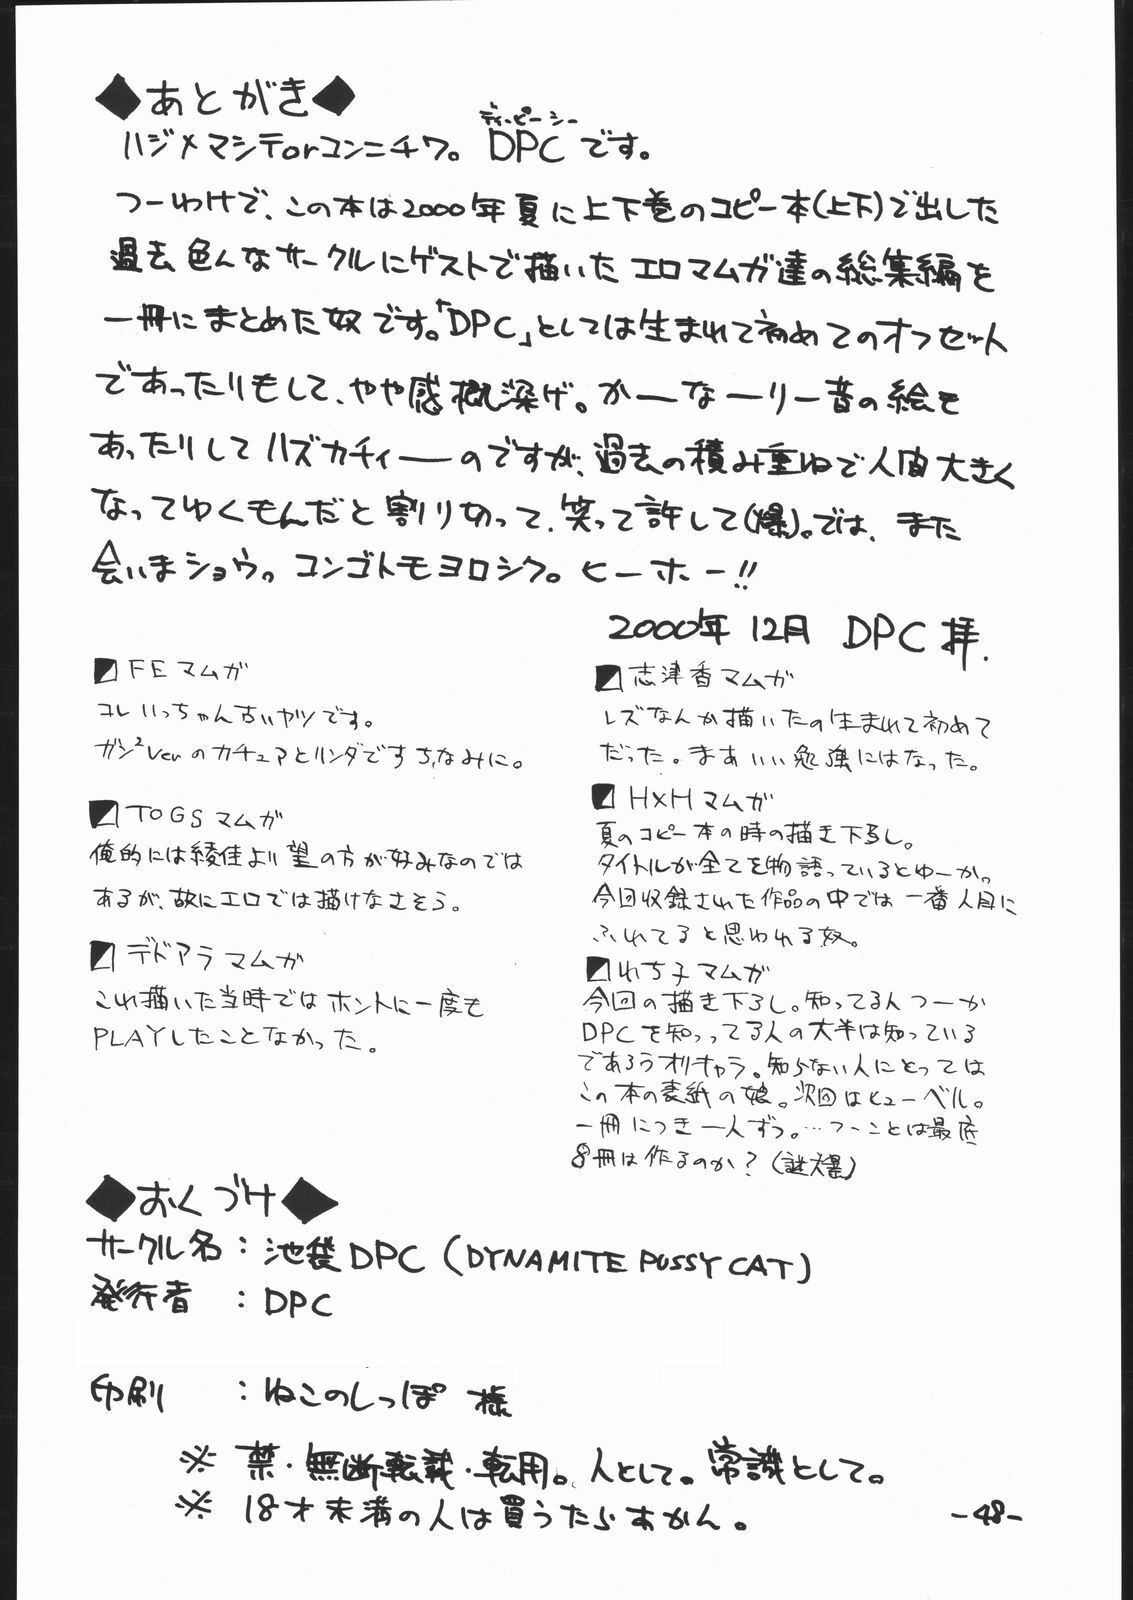 ◆あとがき◆
ディーピーシー
ハジメマシテorコンニチワ。DPCです。
つーわけで、この本は2000年夏に上下巻のコピー本(上下)で出した
過去、色んなサークルにゲストで描いたエロマムガ達の総集編を
一冊にまとめた奴です。「DPC」としては生まれて初めてのオフセット
であったりもして、やや感概深げ。かーなーりー昔の絵も
あったりしてハズカチィーのですが、過去の積み重ねで人間大きく
なってゆくもんだと割り切って、笑って許して(爆)。では、また
会いまショウっ。コンゴトモヨロシク。ヒーホー!!
2000年12月 DPC拝.
FEマムガ
コレいっちゃん古いヤツです。
ガシ²Verのカチュアとリンダですちなみに。
TOGSマムガ
俺的には綾佳より望の方が好みなのでは
あるが、故にエロでは描けなさそう。
デドアラマムガ
これ描いた当時ではホントに一度も
PLAYしたことなかった。
志津香マムガ
レズなんか描いたの生まれて初めて
だった。まあいい勉強にはなった。
H×Hマムガ
夏のコピー本の時の描き下ろし。
タイトルが全てを物語っているとゆーか。
今回収録された作品の中では一番人目に
ふれてると思われる奴。
れち子マムガ
今回の描き下ろし。知ってる人つーか
DPCを知ってる人の大半は知っている
であろうオリキャラ。知らない人にとっては
この本の表紙の娘。次回はヒューベル。
一冊につき一人ずつ。…つーことは最底
8冊は作るのか?(謎爆)
◆おくづけ◆
サークル名:池袋DPC(DYNAMITE PUSSY CAT)
発行者:DPC
印刷:ねこのしっぽ 様
※ 禁・無断転載・転用。人として。常識として。
※ 18才未満の人は買うたらあかん。
-48-